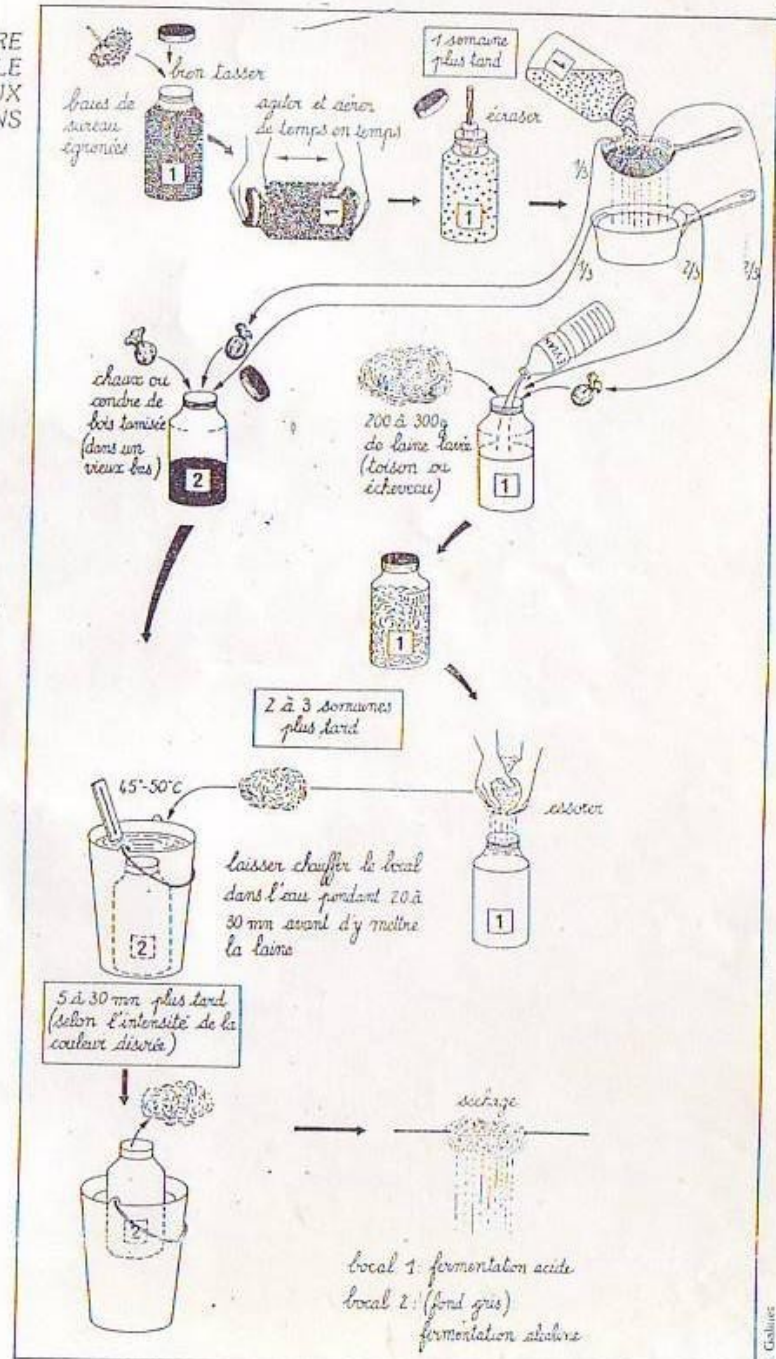 RE
LE
UX
NS
bien tasser
baies de
sureau
égrenées
1
agiter et aérer
de temps en temps
1
1 semaine
plus tard
écraser
1
1
1/3
1/3
2/3
2/3
chaux ou
cendre de
bois tamisée
(dans un
vieux bas)
2
200 à 300g
de laine lavée
(toison ou
écheveau)
1
1
2 à 3 semaines
plus tard
45°-50°C
essorer
laisser chauffer le bocal
dans l'eau pendant 20 à
30 mn avant d'y mettre
la laine
2
1
5 à 30 mn plus tard
(selon l'intensité de la
couleur désirée)
séchage
2
bocal 1: fermentation acide
bocal 2: (fond gris)
fermentation alcaline